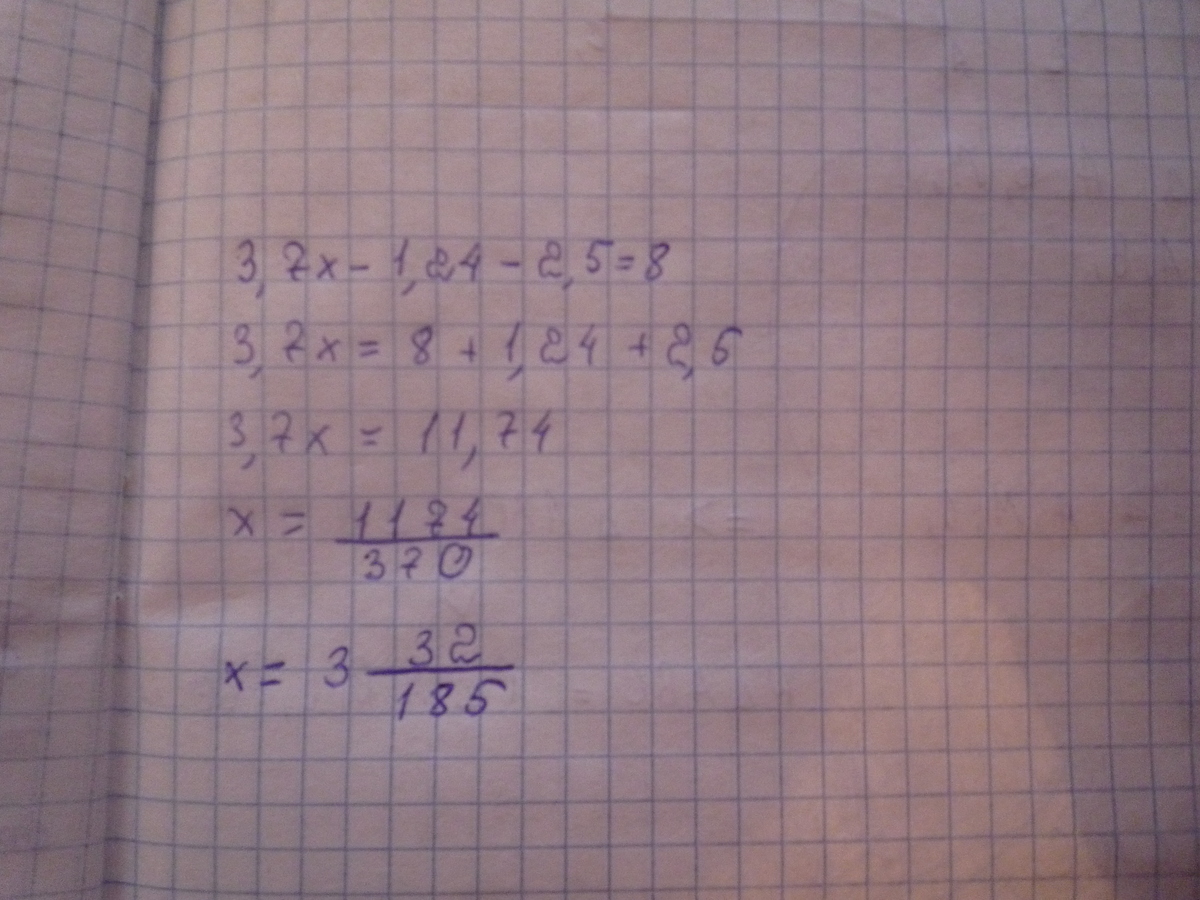 3,7x - 1,24 - 2,5 = 8
3,7x = 8 + 1,24 + 2,5
3,7x = 11,74
x = 1174/370
x = 3 32/185